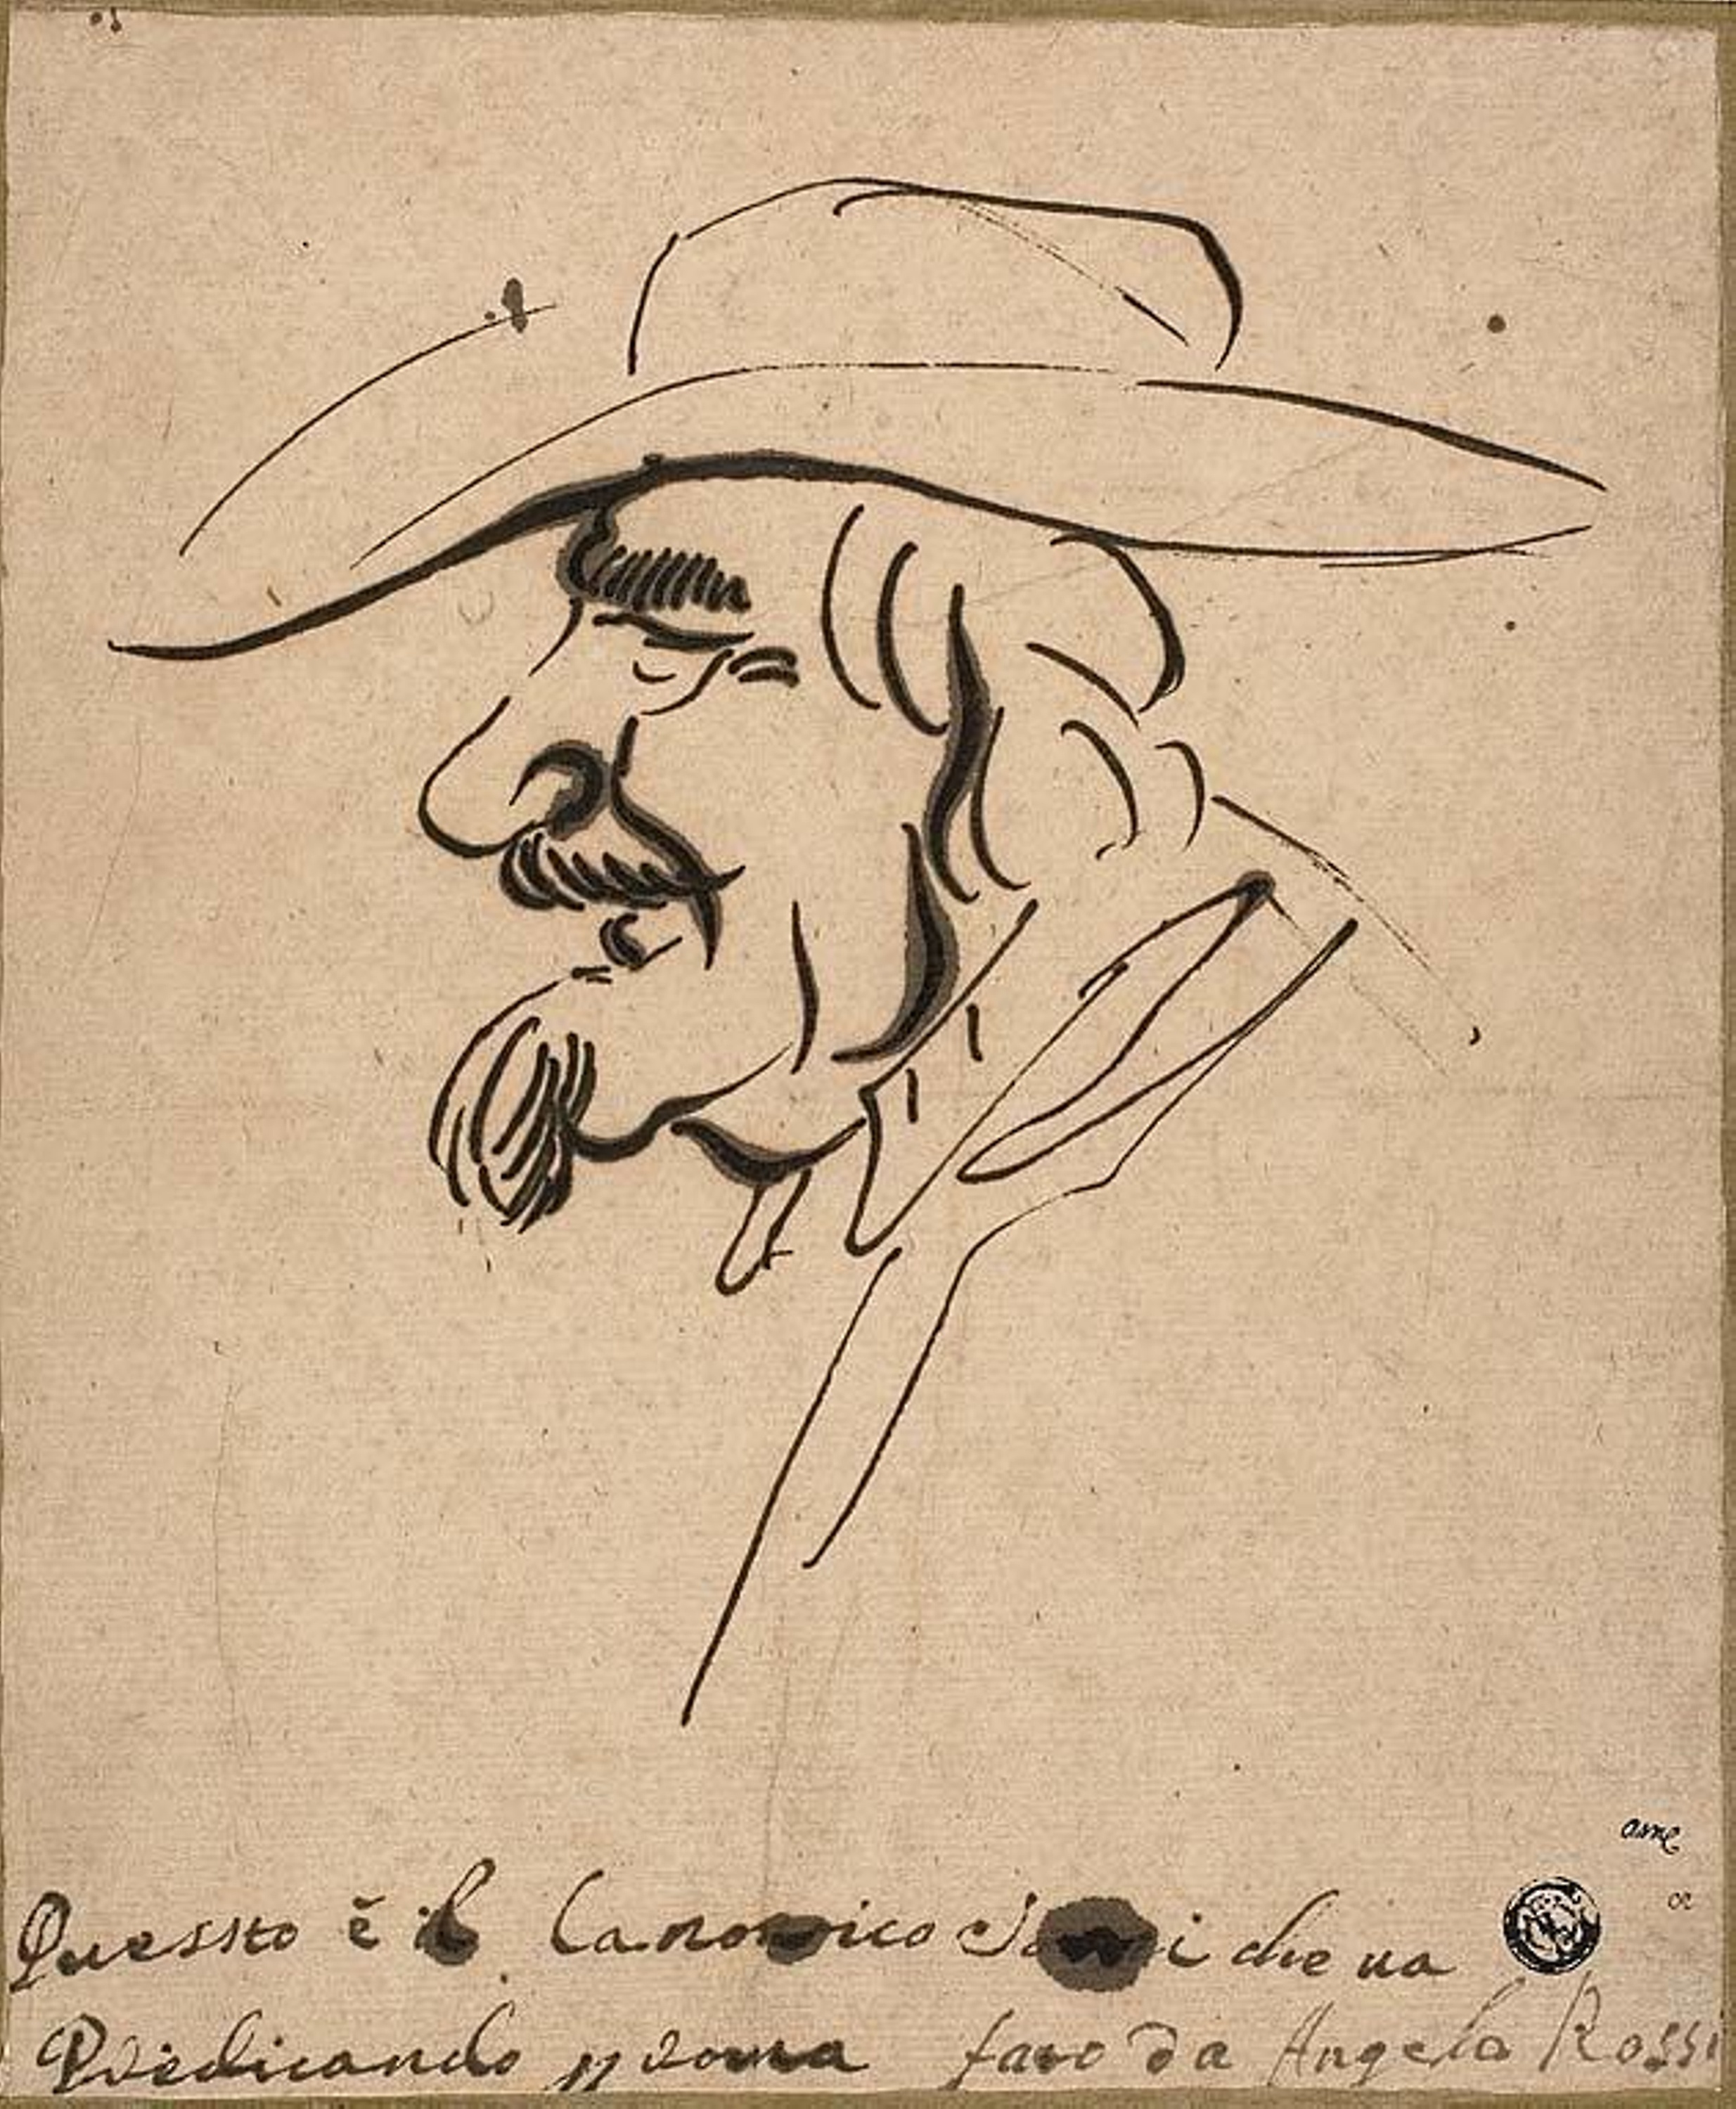 ame
Quessto è il Canonico che va
Predicando p roma fato da Angelo Rossi